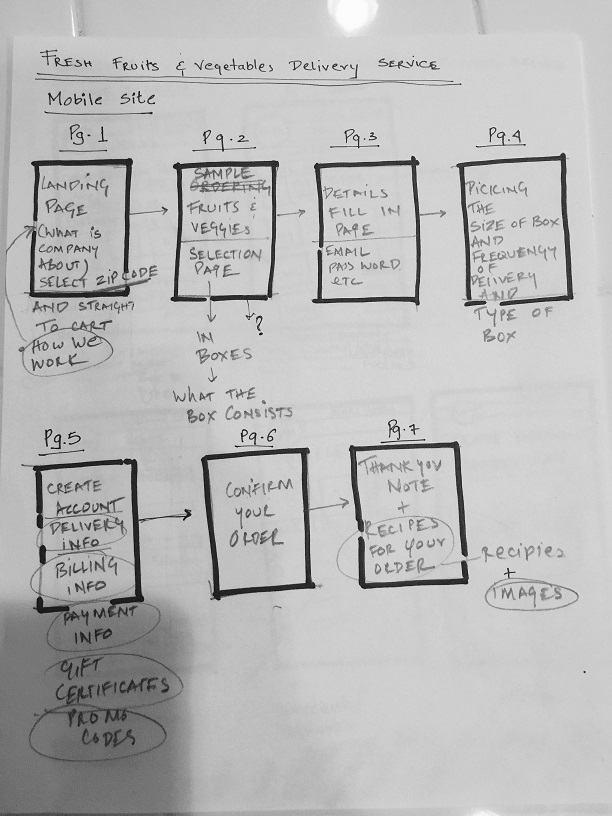 FRESH FRUITS & Vegetables Delivery SERVICE
Mobile Site
Pg. 1
LANDING
PAGE
(WHAT IS
COMPANY
ABOUT)
SELECT ZIP CODE
AND STRAIGHT
TO CART
HOW WE
WORK
Pg. 2
SAMPLE
ORDERING
FRUITS &
VEGGIES
SELECTION
PAGE
?
IN
BOXES
WHAT THE
BOX CONSISTS
Pg. 3
DETAILS
FILL IN
PAGE
EMAIL
PASS WORD
etc
Pg. 4
PICKING
THE
SIZE OF BOX
AND
FREQUENGY
OF
DELIVERY
AND
TYPE OF
BOX
Pg. 5
CREATE
ACCOUNT
DELIVERY
INFO
BILLING
INFO
PAYMENT
INFO
GIFT
CERTIFICATES
PROMO
CODES
Pg. 6
CONFIRM
YOUR
ORDER
Pg. 7
THANK YOU
NOTE
+
RECIPES
FOR YOUR
ORDER
Recipies
+
IMAGES